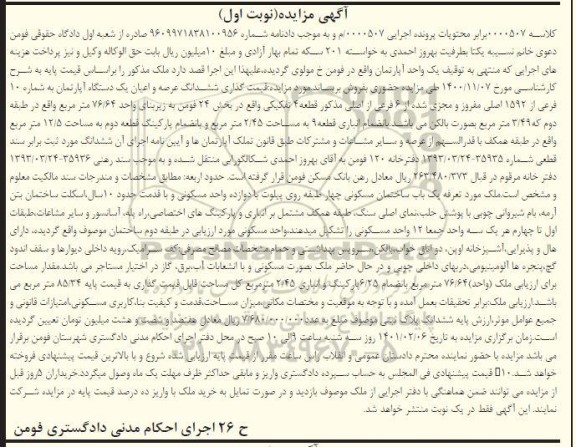 آگهی مزایده(نوبت اول)
کلاسه ۰۰۰۰۵۰۷برابر محتویات پرونده اجرایی ۰۰۰۰۵۰۷/م و به موجب دادنامه شماره ۹۶۰۹۹۷۱۸۳۸۱۰۰۹۵۶ صادره از شعبه اول دادگاه حقوقی فومن
دعوی خانم نسیبه یکتا بطرفیت بهروز احمدی به خواسته ۲۰۱ سکه تمام بهار آزادی و مبلغ ۱۰میلیون ریال بابت حق الوکاله وکیل و نیز پرداخت هزینه
های اجرایی که منتهی به توقیف یک واحد آپارتمان واقع در فومن خ مولوی گردیده،علیهذا این اجرا قصد دارد ملک مذکور را براساس قیمت پایه به شرح
کارشناسی مورخ ۱۴۰۰/۱۱/۰۷ طی مزایده حضوری بفروش برساند.مورد مزایده،قیمت گذاری ششدانگ عرصه و اعیان یک دستگاه آپارتمان به شماره ۱۰
فرعی از ۱۵۹۲ اصلی مفروز و مجزی شده از ۶ فرعی از اصلی مذکور قطعه۴ تفکیکی واقع در بخش ۲۴ فومن به زیربنای واحد ۷۶/۶۴ متر مربع واقع در طبقه
دوم که۳/۴۹ متر مربع بصورت بالکن می باشد. بانضمام انباری قطعه۹ به مساحت ۲/۴۵ متر مربع و بانضمام پارکینگ قطعه دوم به مساحت ۱۲/۵ متر مربع
واقع در طبقه همکف با قدرالسهم از عرصه و سایر مشاعات و مشترکات طبق قانون تملک آپارتمان ها و آیین نامه اجرای آن ششدانگ مورد ثبت برابر سند
قطعی شماره ۳۵۹۳۵-۱۳۹۳/۰۳/۲۴ دفترخانه ۱۲۰ فومن به آقای بهروز احمدی شکالگورابی منتقل شده و به موجب سند رهنی ۳۵۹۳۶-۱۳۹۳/۰۳/۲۴
دفتر خانه مرقوم در قبال ۲۶۳/۴۸۰/۳۷۳ ریال معادل رهن بانک مسکن فومن قرار گرفته است. حدود اربعه: مطابق مشخصات و مندرجات سند مالکیت معلوم
و مشخص است.ملک مورد تعرفه یک باب ساختمان مسکونی چهار طبقه روی پیلوت با دوازده واحد مسکونی و با قدمت حدود ۱۰سال،اسکلت ساختمان بتن
آرمه، بام شیروانی چوبی با پوشش حلب،نمای اصلی سنگ، طبقه همکف مشتمل بر انباری و پارکینگ های اختصاصی،راه پله، آسانسور و سایر مشاعات،طبقات
اول تا چهارم هر یک سه واحد (جمعا ۱۲ واحد مسکونی) را تشکیل میدهند.واحد مسکونی مورد ارزیابی در طبقه دوم ساختمان موصوف واقع گردیده، دارای
هال و پذیرایی،آشپزخانه اوپن، دو اتاق خواب،بالکن، سرویس بهداشتی و حمام.مشخصات مصالح مصرفی:کف سرامیک،رویه داخلی دیوارها و سقف اندود
گچ،پنجره ها آلومینیومی،دربهای داخلی چوبی و در حال حاضر ملک بصورت مسکونی و با انشعابات آب،برق، گاز در اختیار مستاجر می باشد.مقدار مساحت
برای ارزیابی ملک (واحد)۷۶/۶۴متر مربع بانضمام ۶/۲۵پارکینگ و انباری ۲/۴۵ مترمربع کل مساحت قابل قیمت گذاری به قیمت پایه ۸۵/۳۴ متر مربع می
باشد.ارزیابی ملک،برابر تحقیقات بعمل آمده و با توجه به موقعیت و مختصات مکانی،میزان مساحت،قدمت و کیفیت بنا،کاربری مسکونی،امتیازات قانونی و
جمیع عوامل موثر،ارزش پایه ششدانگ پلاک ثبتی موصوف مبلغ به عدد ۷/۶۸۰/۰۰۰/۰۰۰ ریال معادل هفتصد و شصت و هشت میلیون تومان تعیین گردیده
است.زمان برگزاری مزایده به تاریخ ۱۴۰۱/۰۲/۰۶ روز سه شنبه ساعت ۹الی ۱۰ صبح در محل دفتر اجرای احکام مدنی دادگستری شهرستان فومن برقرار
می باشد مزایده با حضور نماینده محترم دادستان عمومی و انقلاب راس ساعت مقرر از قیمت پایه ارزیابی شده شروع و با بالاترین قیمت پیشنهادی فروخته
خواهد شد. ۱۰٪ قیمت پیشنهادی فی المجلس به حساب سپرده دادگستری واریز و مابقی حداکثر ظرف مهلت یک ماه وصول میگردد.خریداران ۵روز قبل
از مزایده می توانند ضمن هماهنگی با دفتر اجرایی از ملک موصوف بازدید و در صورت تمایل به خرید ملک با واریز ده درصد قیمت پایه در مزایده شرکت
نمایند. این آگهی فقط در یک نوبت منتشر خواهد شد.
ح ۲۶ اجرای احکام مدنی دادگستری فومن